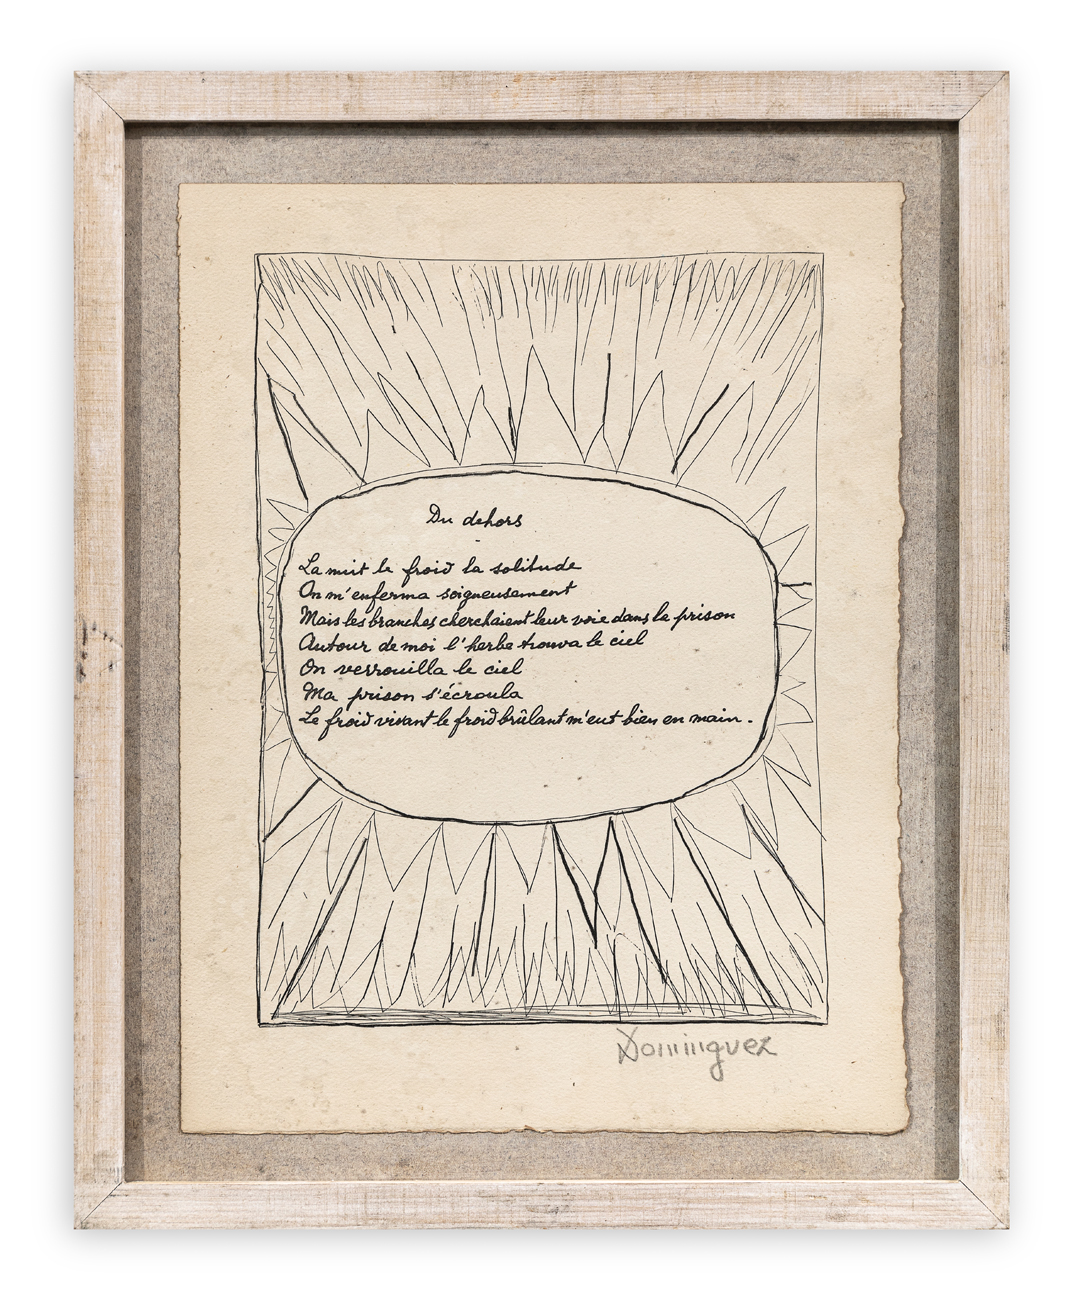 Du dehors
La nuit le froid la solitude
On m'enferma soigneusement
Mais les branches cherchaient leur voie dans la prison
Autour de moi l'herbe trouva le ciel
On verrouilla le ciel
Ma prison s'écroula
Le froid vivant le froid brûlant m'eut bien en main.
Dominguez